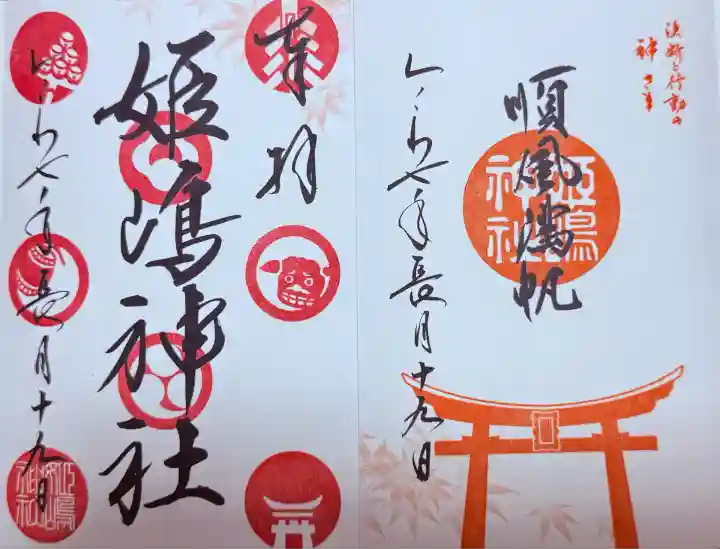 奉拝
姫嶋神社
令和七年長月十九日
姫嶋神社
決断と行動の
神さま
順風満帆
姫嶋神社
令和七年長月十九日